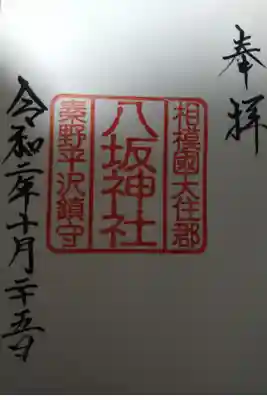 奉拝
相模國大住郡
八坂神社
秦野平沢鎮守
令和二年十月二十五日